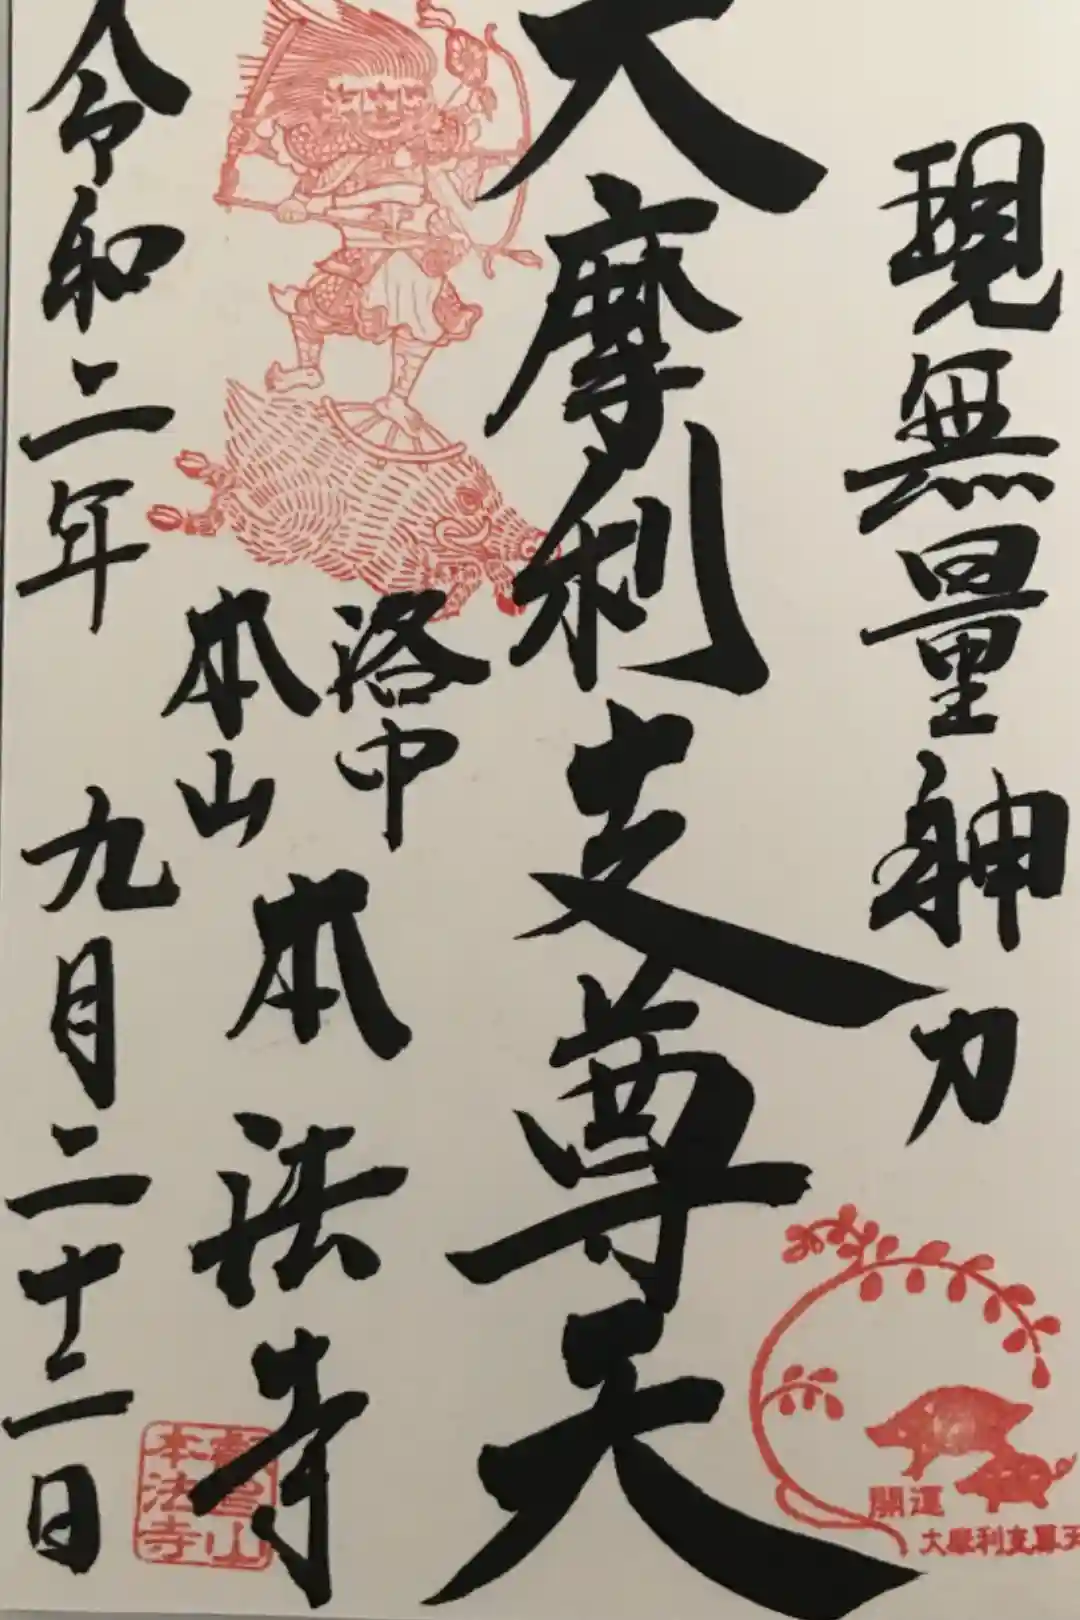 現無量神力
大摩利支尊天
洛中
本山
本法寺
令和二年 九月二十二日
開運
大摩利支尊天
山
本法寺